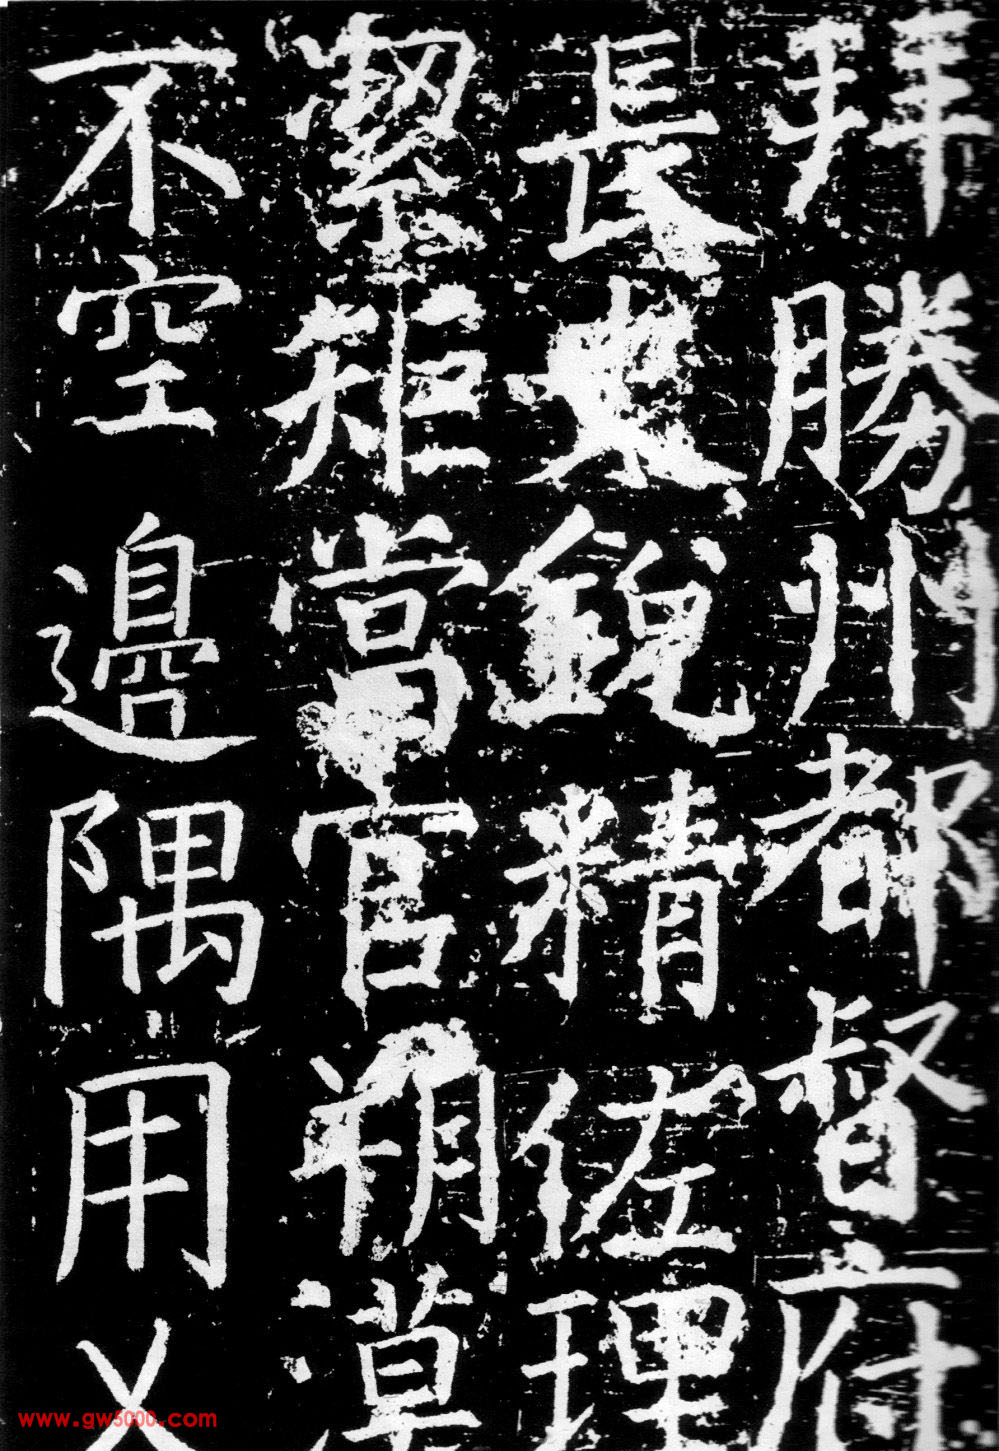 拜勝州都督府
長史銳精佐理
絜矩當官朔漠
不空邊隅用乂
www.gw5000.com